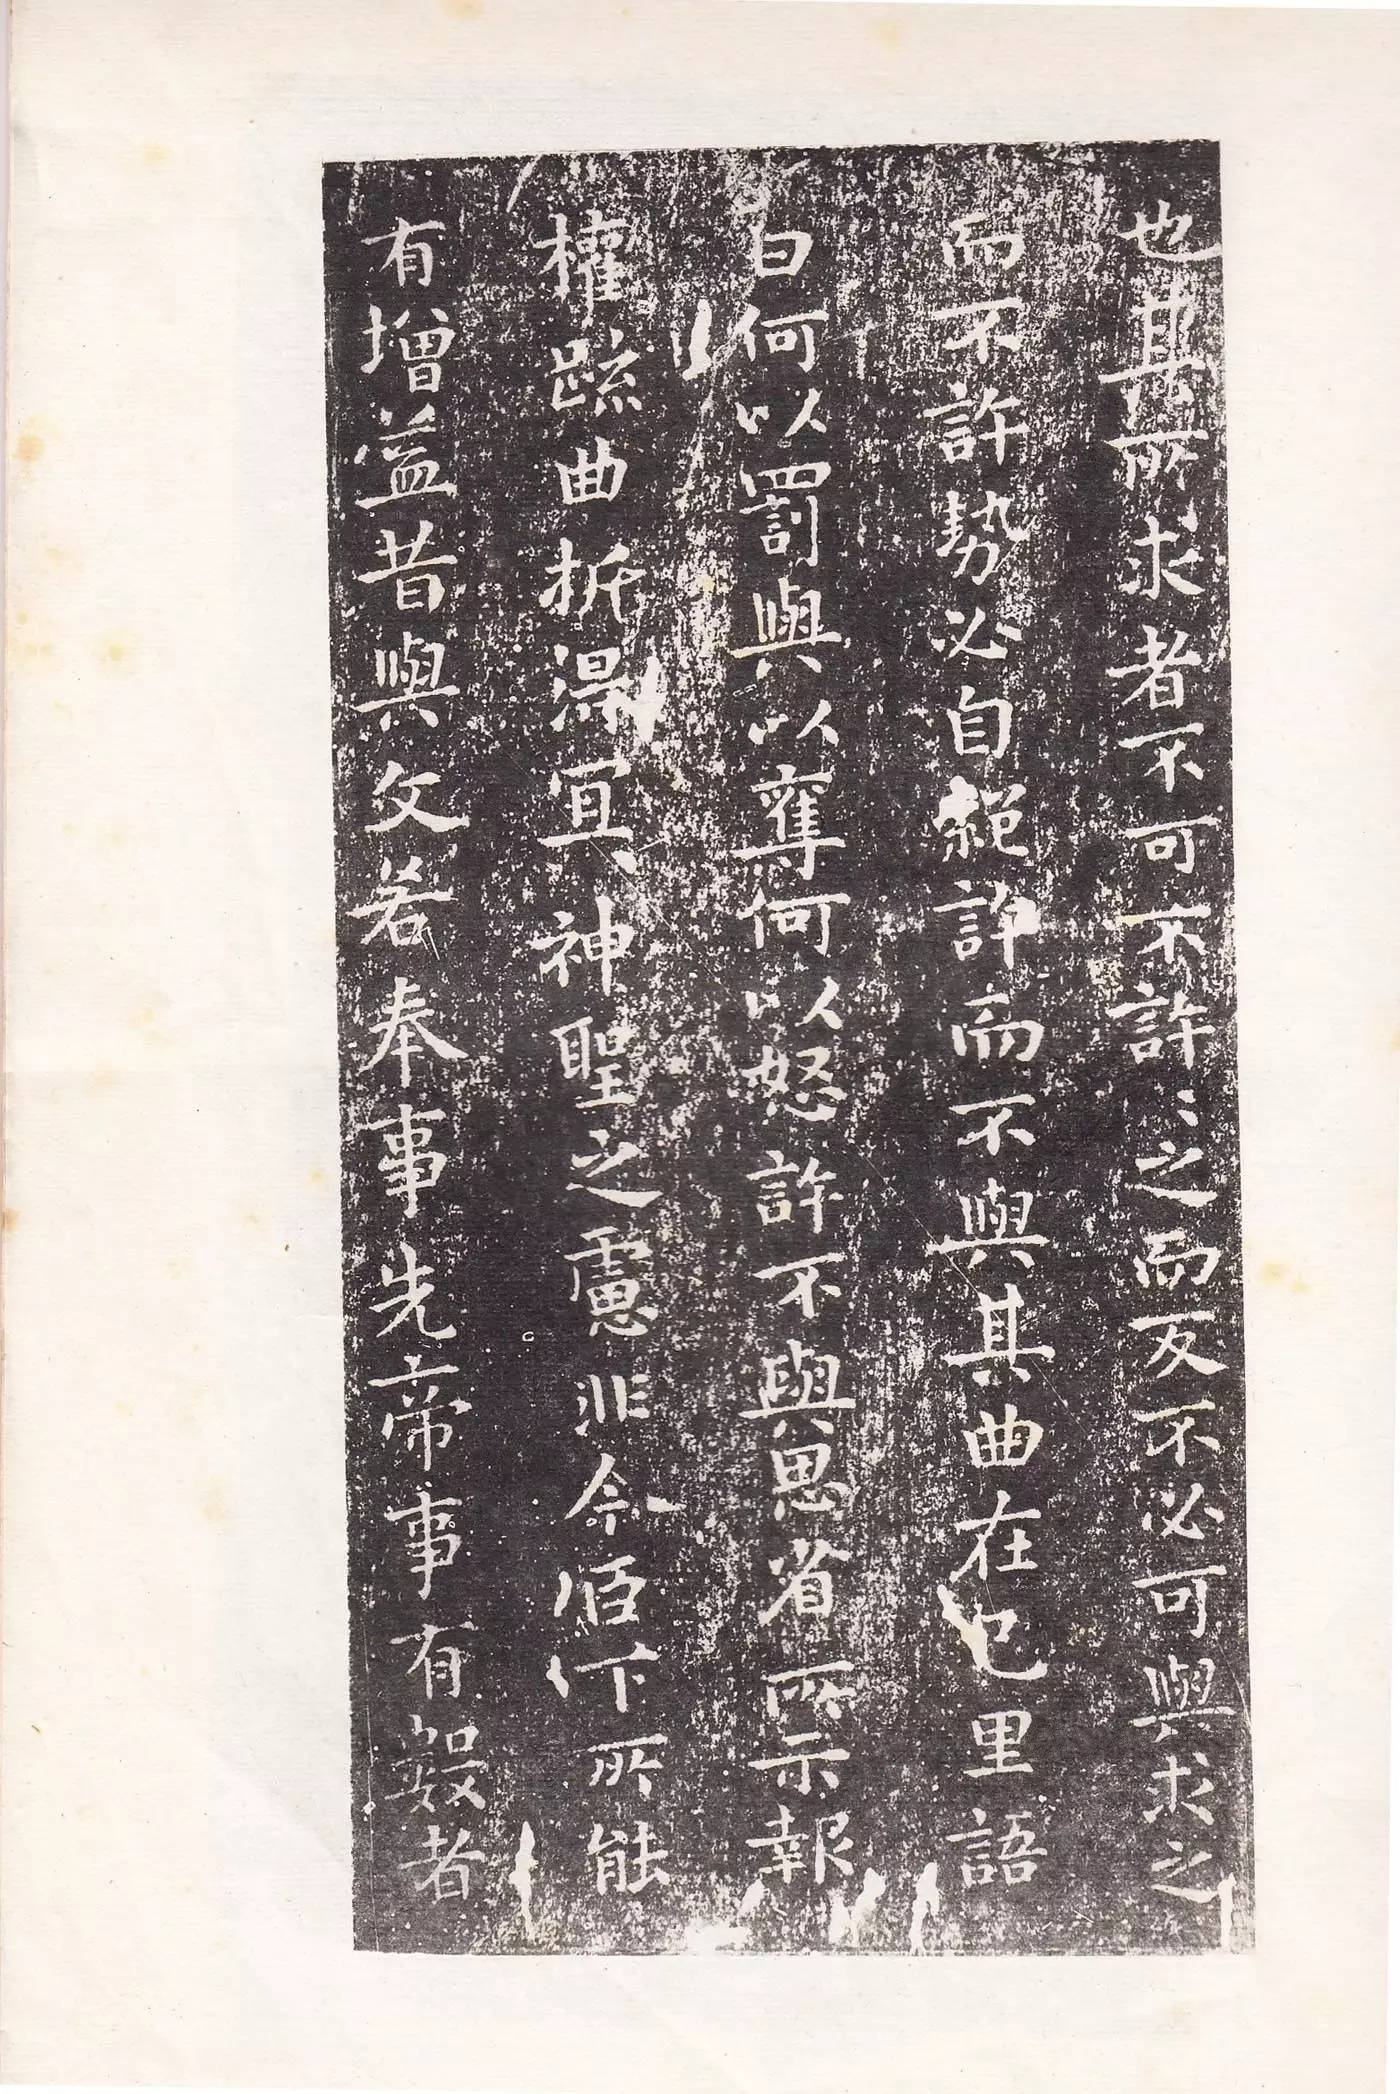 也其所求者不可不許〻之而反不必可與求之
而不許勢必自絕許而不與其曲在己里語
曰何以罰與以奪何以怒許不與思省所示報
權疏曲折得冝神聖之慮非今臣下所能
有增益昔與文若奉事先帝事有數者